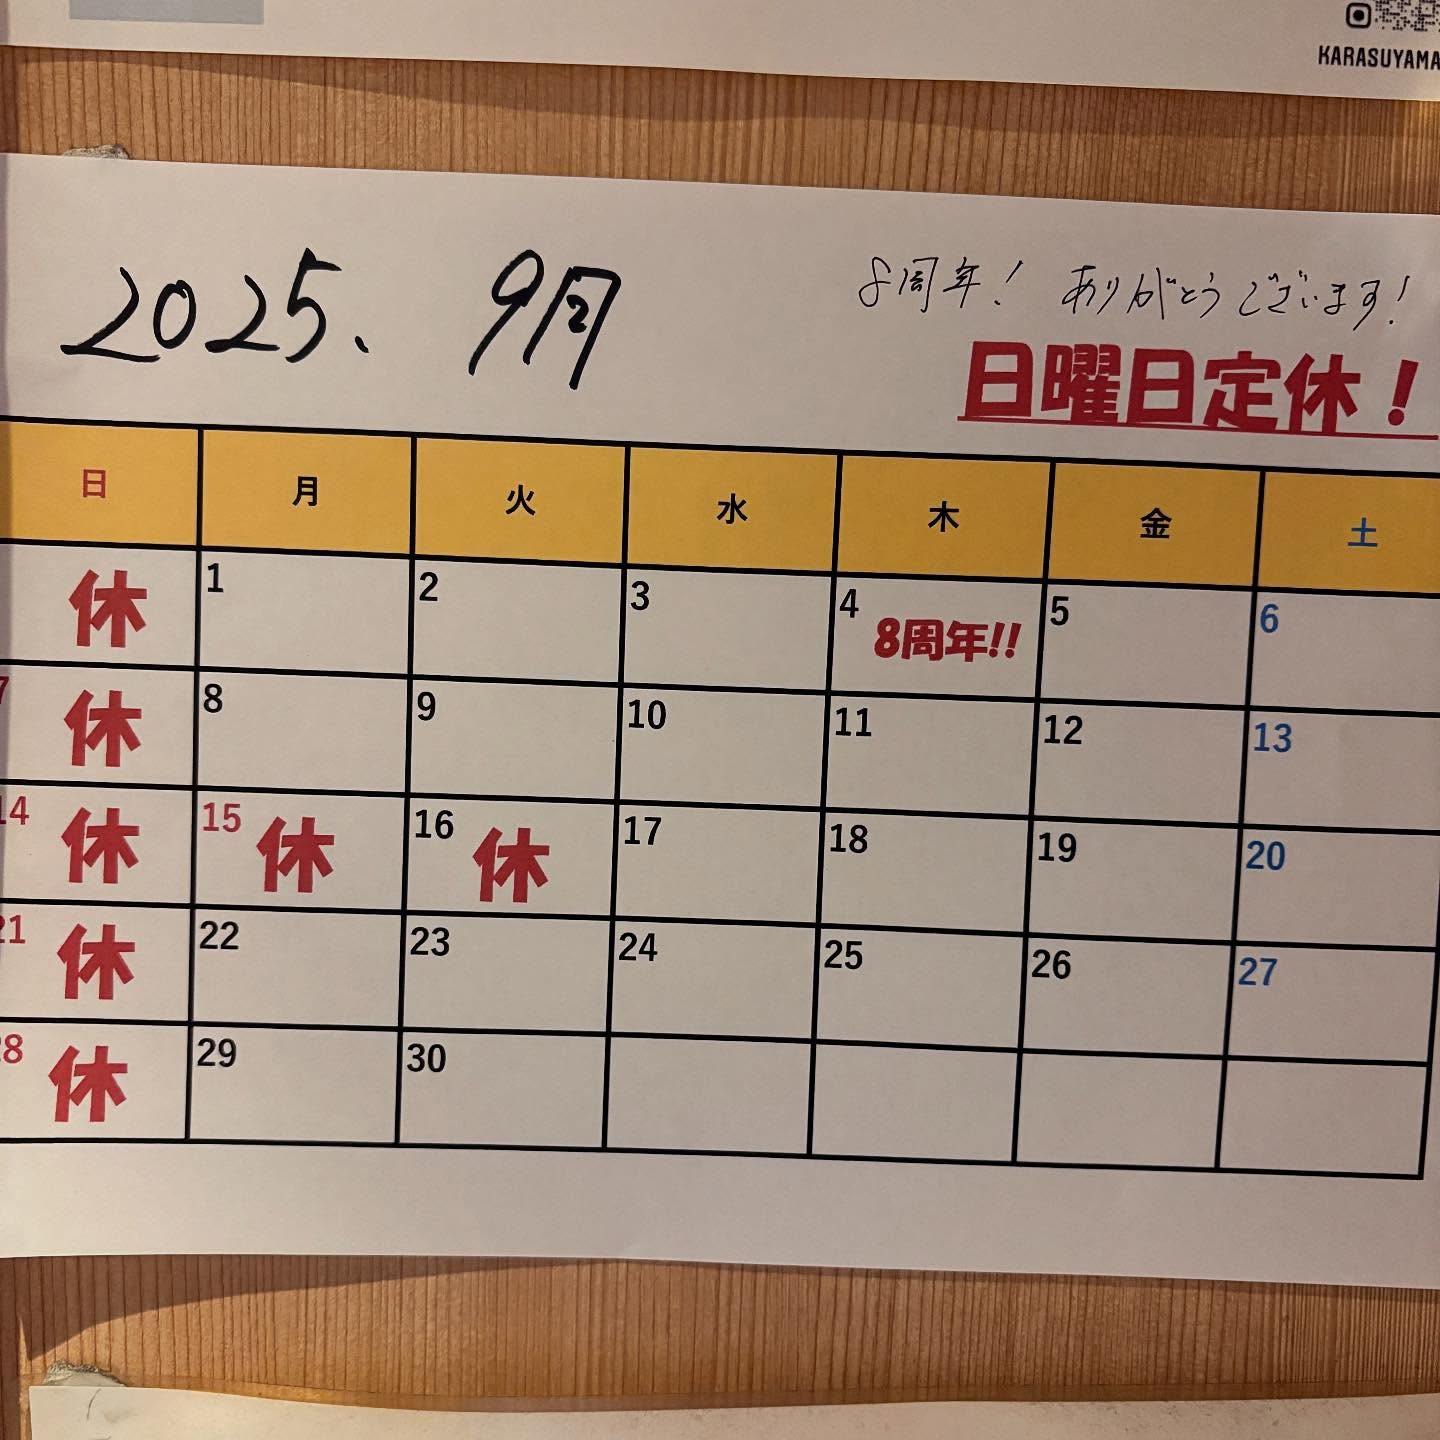 KARASUYAMA
2025、 9月
8周年! ありがとうございます!
日曜日定休!
日 月 火 水 木 金 土
休 1 2 3 4 8周年!! 5 6
7 休 8 9 10 11 12 13
14 休 15 休 16 休 17 18 19 20
21 休 22 23 24 25 26 27
28 休 29 30